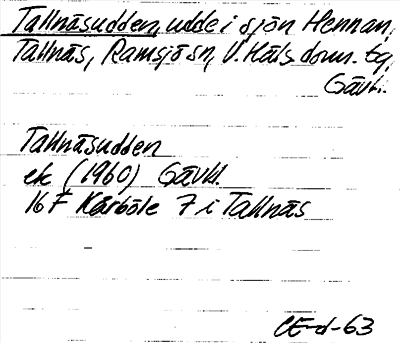 Tallnäsudden, udde i sjön Hennan,
Tallnäs, Ramsjö sn, V. Häls. doms. tg,
Gävl.
Tallnäsudden
ek (1960) Gävl.
16F Kårböle 7 i Tallnäs
CE-d-63